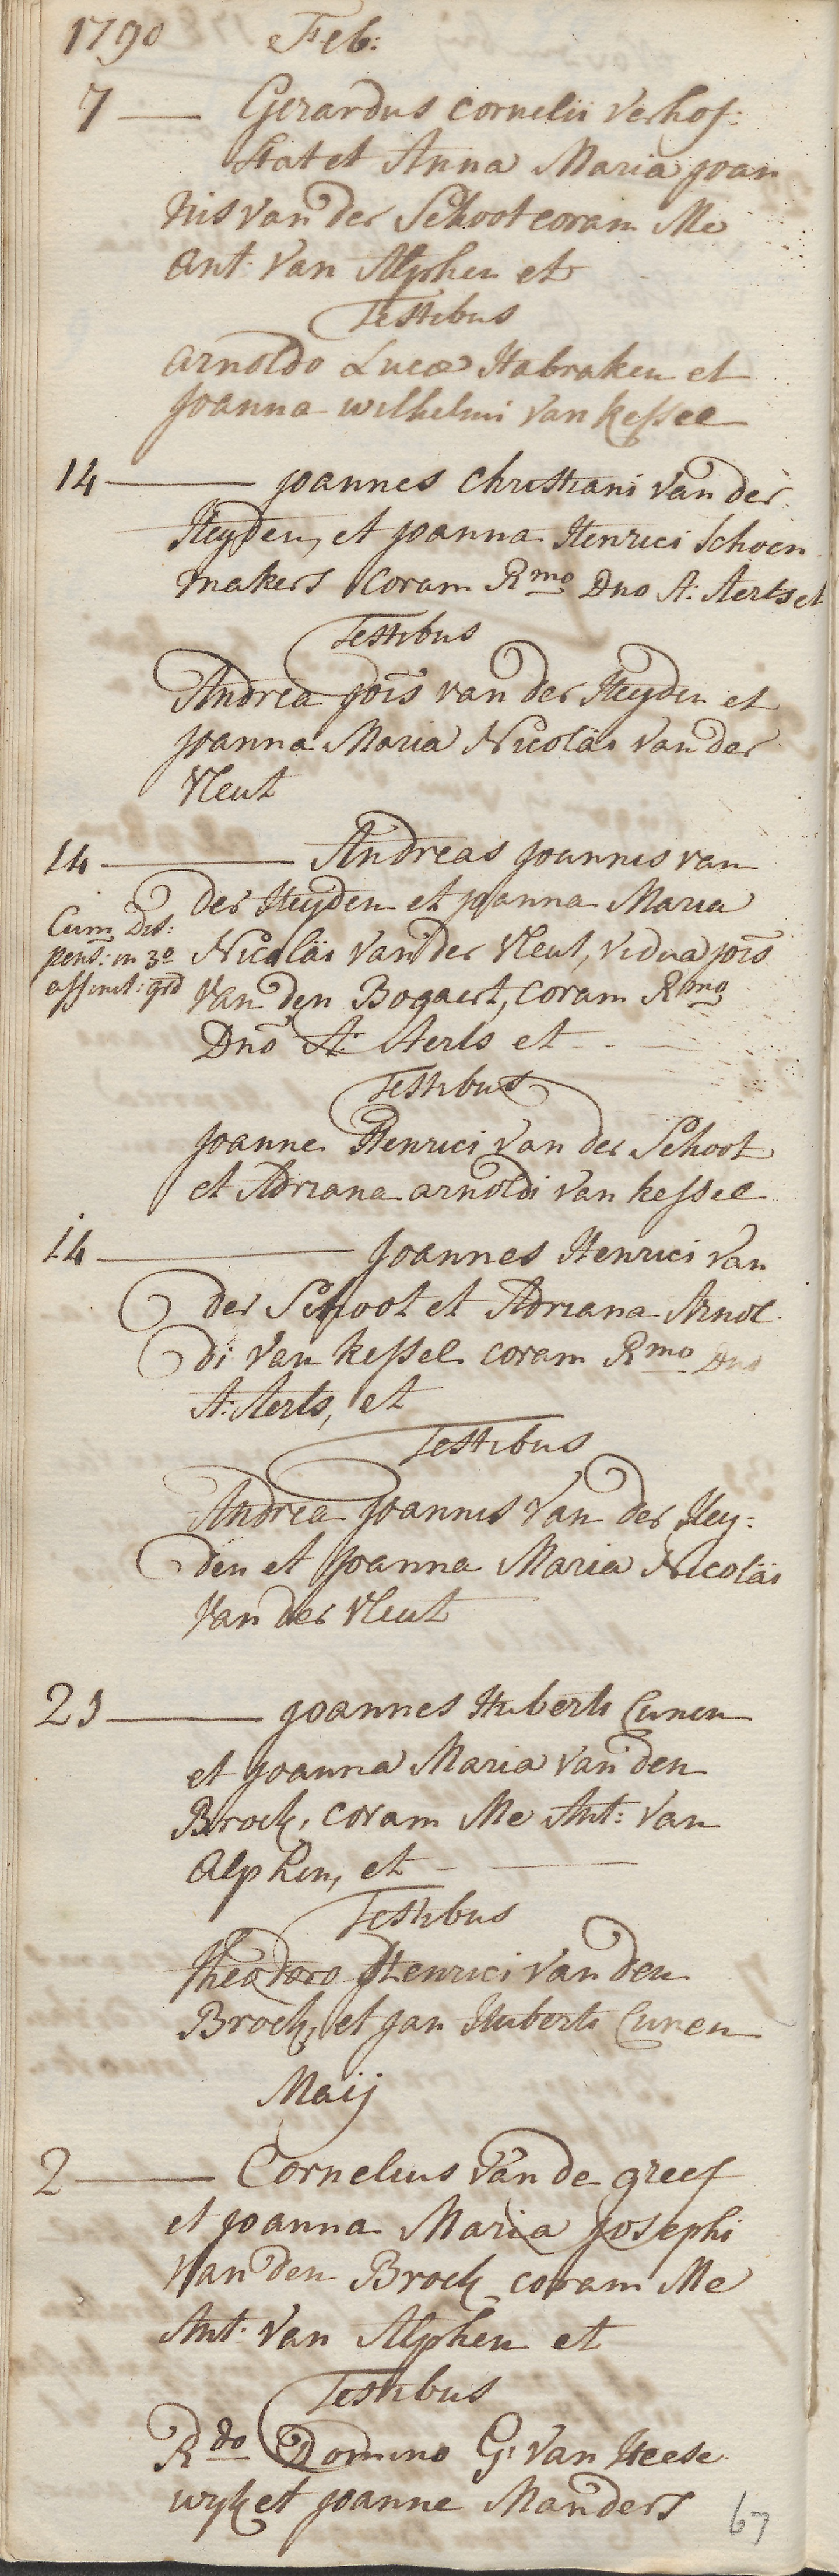 1790 Feb:
7 — Gerardus Cornelii Verhof:
stat et Anna Maria Joan
nis van der Schoot coram Me
Ant. Van Alphen et
Testibus
Arnoldo Lucæ Habraken et
Joanna Wilhelmi Van Kessel
14 — Joannes Christiani van der
Heyden, et Joanna Henrici Schoen
makers Coram Rmo Dno A: Aerts et
Testibus
Andrea Jois van der Heyden et
Joanna Maria Nicolai van der
Vleut
14 — Andreas Joannis van
der Heyden et Joanna Maria
Cum Dis:
pens: in 3o
affinit: grd
Nicolai Van der Vleut, vidua Jois
Van den Bogaert, Coram Rmo
Dno A: Aerts et
Testibus
Joanne Henrici Van der Schoot
et Adriana Arnoldi Van Kessel
14 — Joannes Henrici Van
der Schoot et Adriana Arnol
di Van Kessel coram Rmo Dno
A: Aerts, et
Testibus
Andrea Joannis Van der Hey:
den et Joanna Maria Nicolai
Van der Vleut
21 — Joannes Huberti Cunen
et Joanna Maria Van den
Broek, Coram Me Ant: Van
Alphen, et —
Testibus
Theodoro Henrici Van den
Broek, et Jan Huberti Cunen
Maij
2 — Cornelius Van de greef
et Joanna Maria Josephi
Van den Broek coram Me
Ant. Van Alphen et
Testibus
Rdo Domino G: Van Heese
wyk et Joanne Manders
67